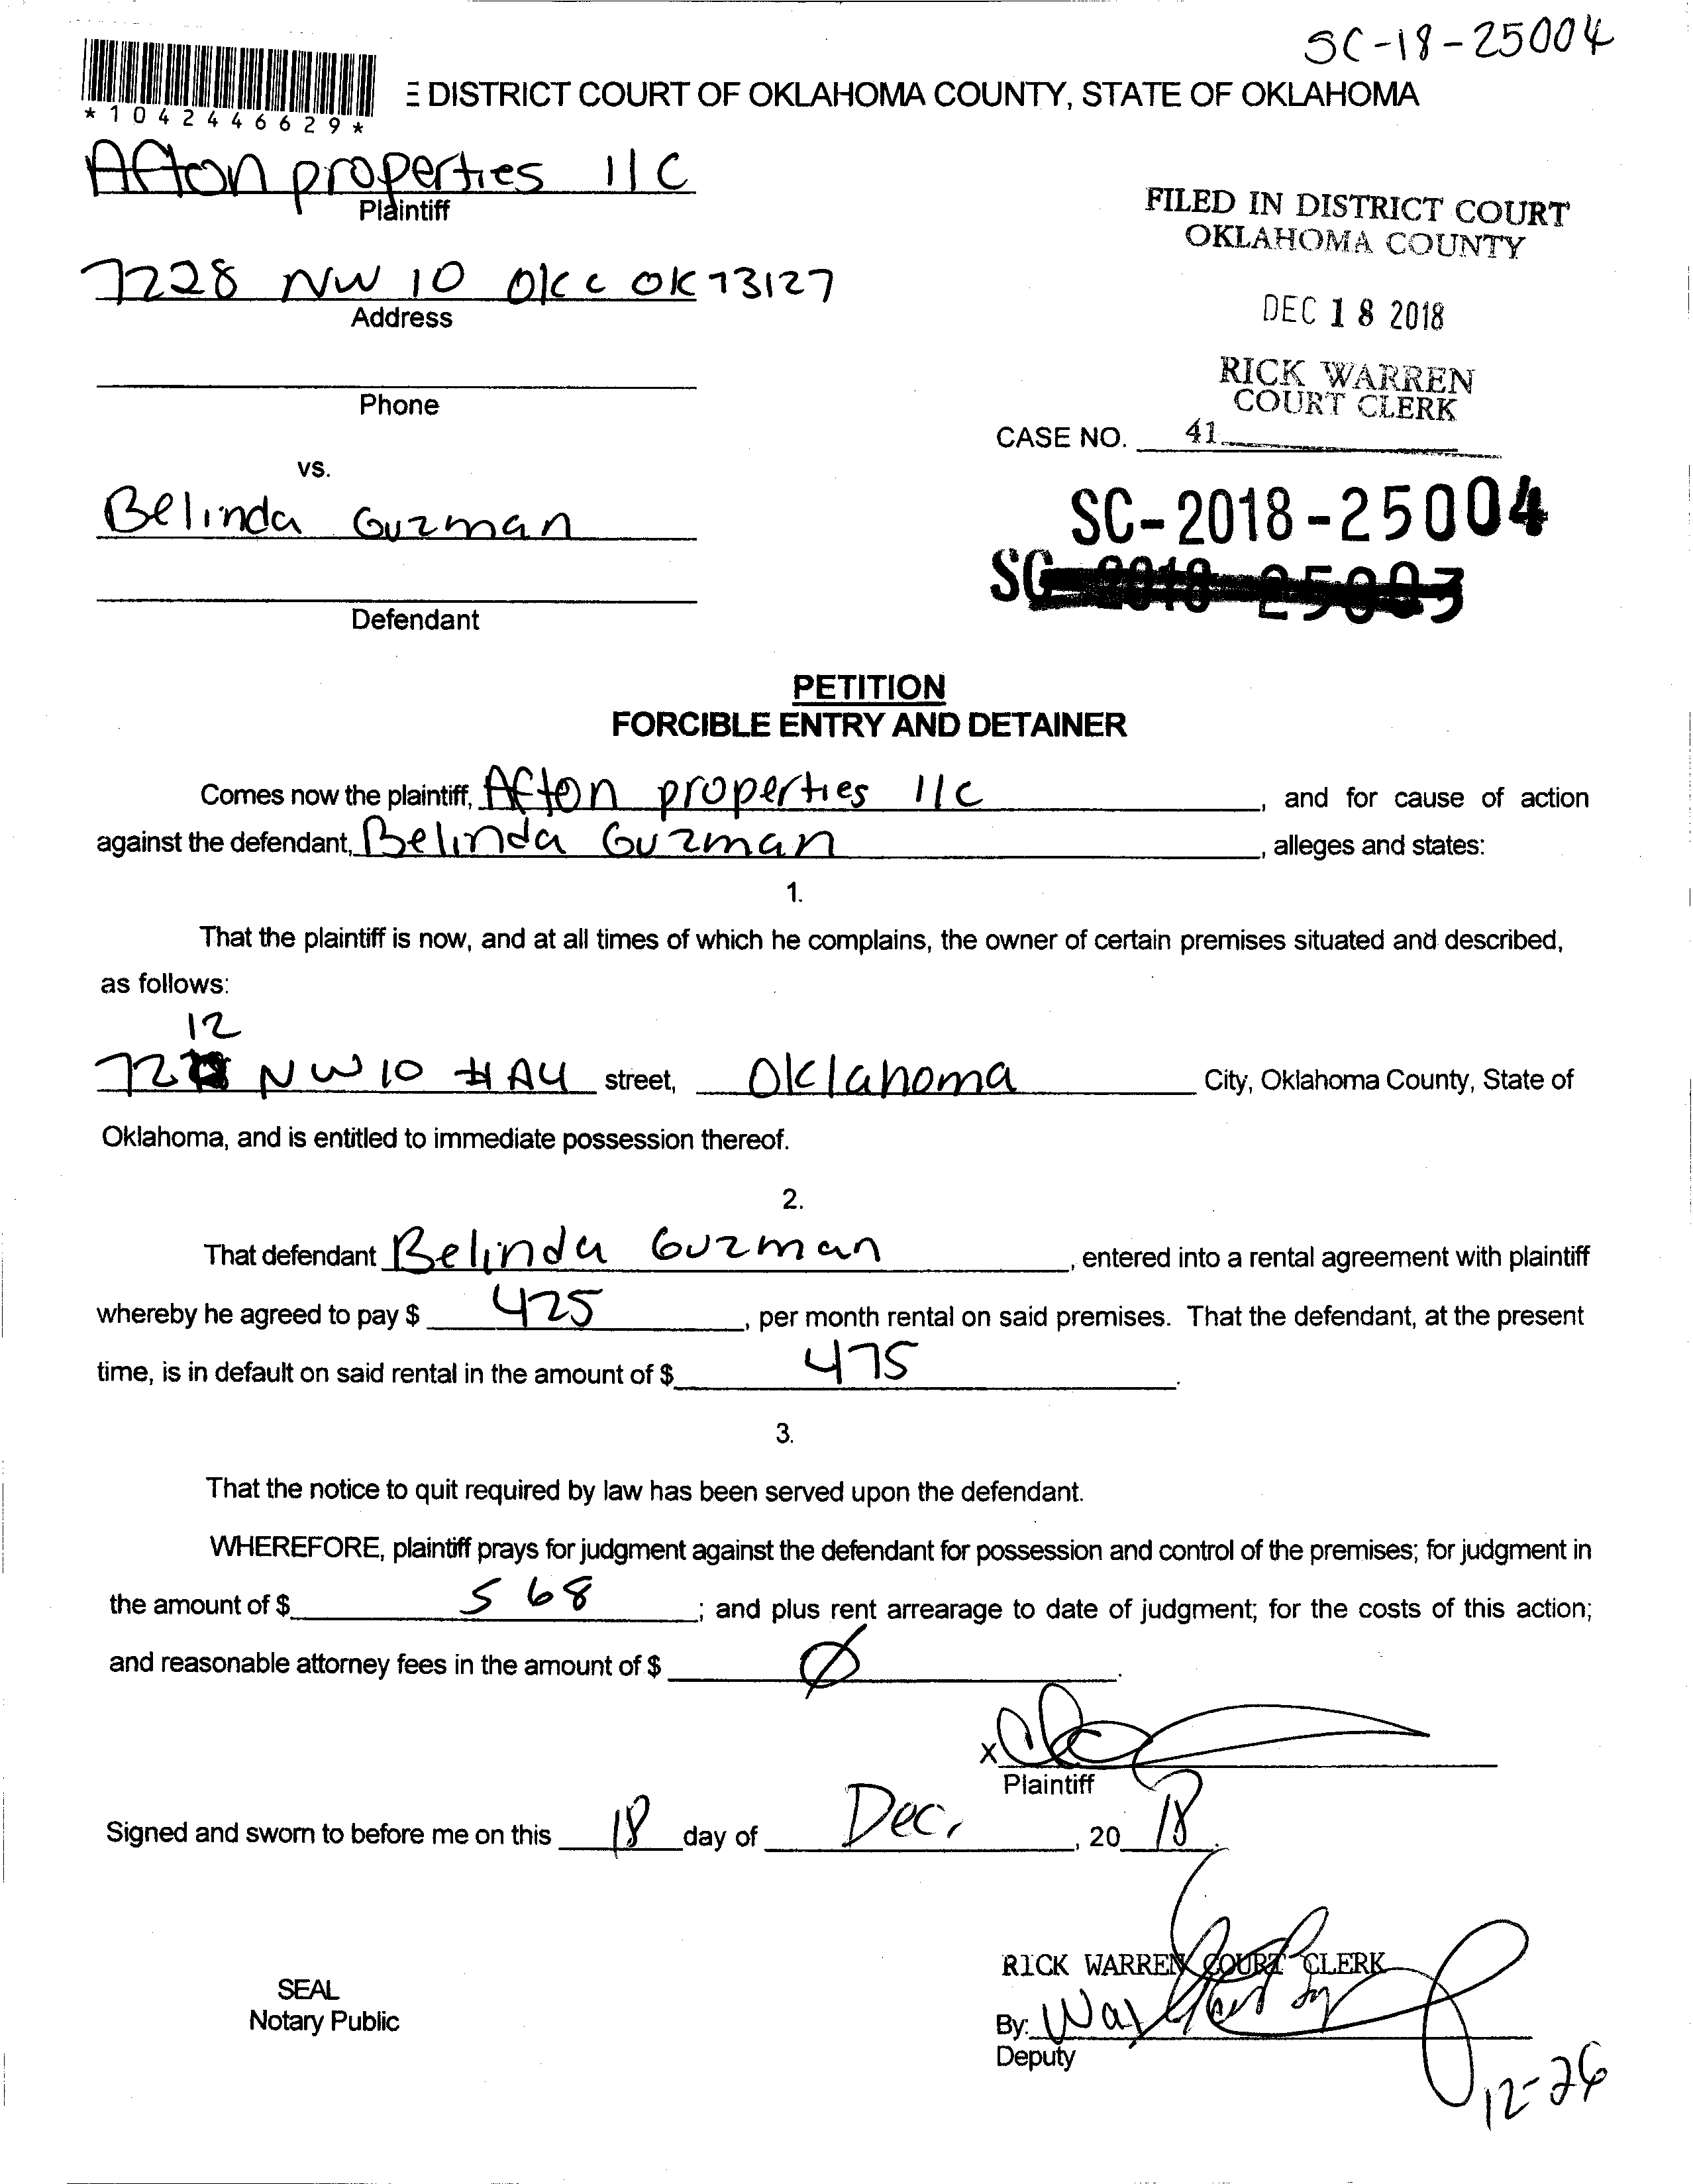 SC-18-25004
*1042446629*
E DISTRICT COURT OF OKLAHOMA COUNTY, STATE OF OKLAHOMA
Afton properties llc
Plaintiff
FILED IN DISTRICT COURT
OKLAHOMA COUNTY
7228 NW 10 OKC OK 73127
Address
DEC 18 2018
RICK WARREN
COURT CLERK
Phone
CASE NO. 41
vs.
Belinda Guzman
SC-2018-25004
SC-2018-25003
Defendant
PETITION
FORCIBLE ENTRY AND DETAINER
Comes now the plaintiff, Afton properties llc, and for cause of action
against the defendant, Belinda Guzman, alleges and states:
1.
That the plaintiff is now, and at all times of which he complains, the owner of certain premises situated and described,
as follows:
12
72 NW 10 #A4 street, Oklahoma City, Oklahoma County, State of
Oklahoma, and is entitled to immediate possession thereof.
2.
That defendant Belinda Guzman, entered into a rental agreement with plaintiff
whereby he agreed to pay $ 425, per month rental on said premises. That the defendant, at the present
time, is in default on said rental in the amount of $ 475.
3.
That the notice to quit required by law has been served upon the defendant.
WHEREFORE, plaintiff prays for judgment against the defendant for possession and control of the premises; for judgment in
the amount of $ 568; and plus rent arrearage to date of judgment; for the costs of this action;
and reasonable attorney fees in the amount of $ Ø.
X
Plaintiff
Signed and sworn to before me on this 18 day of Dec., 20 18.
RICK WARREN COURT CLERK
SEAL
Notary Public
By:
Deputy
12-26